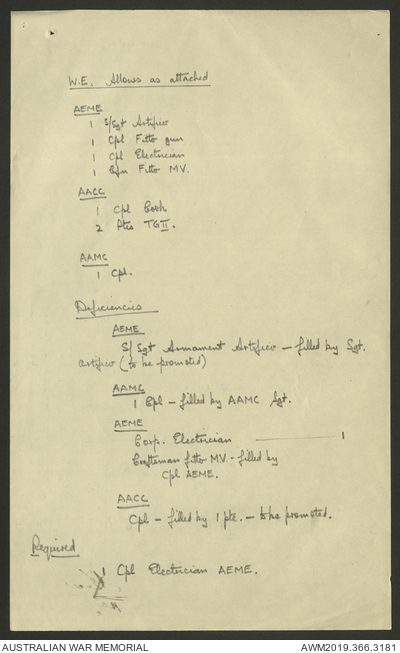 W.E. Allows as attached
AEME
1 S/Sgt Artificer
1 Cpl Fitter gun
1 Cpl Electrician
1 Cfn Fitter M.V.
AACC
1 Cpl Cook
2 Ptes TG II.
AAMC
1 Cpl.
Deficiencies
AEME
S/Sgt Armament Artificer – filled by Sgt.
Artificer (to be promoted)
AAMC
1 Cpl – filled by AAMC Sgt.
AEME
Corp. Electrician — 1
Craftsman fitter M.V. – filled by
Cpl AEME.
AACC
Cpl – filled by 1 pte. – to be promoted.
Required
1 Cpl Electrician AEME.
AUSTRALIAN WAR MEMORIAL
AWM2019.366.3181